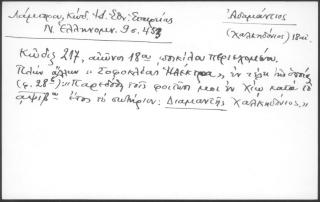 Λάμπρου, Κώδ. Ἱσ. Ἐθν. Ἑταιρίας
Ν. Ἑλληνομν. 9 σ. 453
Ἀδαμάντιος
(Χαλκηδόνιος) 18 αἰ.
Κῶδιξ 217, αἰῶνος 18ου ποικίλου περιεχομένου.
Πλὴν ἄλλων "Σοφοκλέους Ἠλέκτρα", ἐν τέλει
(φ. 28α): "Παρεδόθη τοῖς φοιτῶσί μοι ἐν Χίῳ κατὰ τὸ
αψιβον ἔτος τὸ σωτήριον: Διαμαντῆς Χαλκηδόνιος."